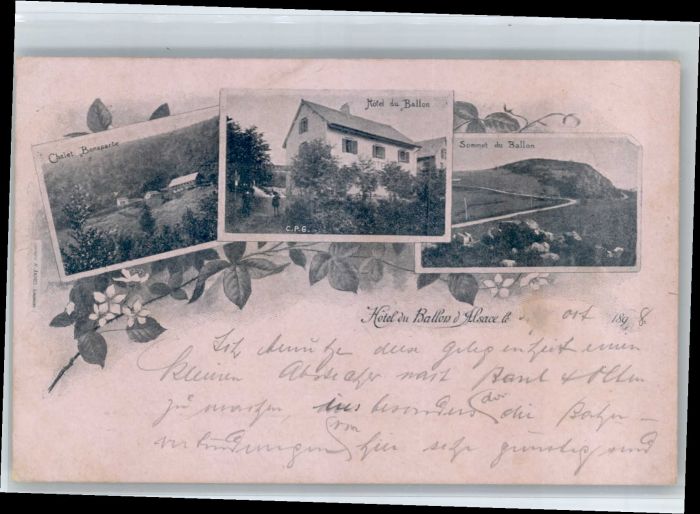 Chalet Bonaparte
Hôtel du Ballon
Sommet du Ballon
C.P.G.
Hôtel du Ballon d'Alsace, le oct 1898
Ich benütze diese Gelegenheit einen
kleinen Abstecher nach &
zu machen, ins besonders da die Bahn-
verbindungen von hier sehr günstig sind